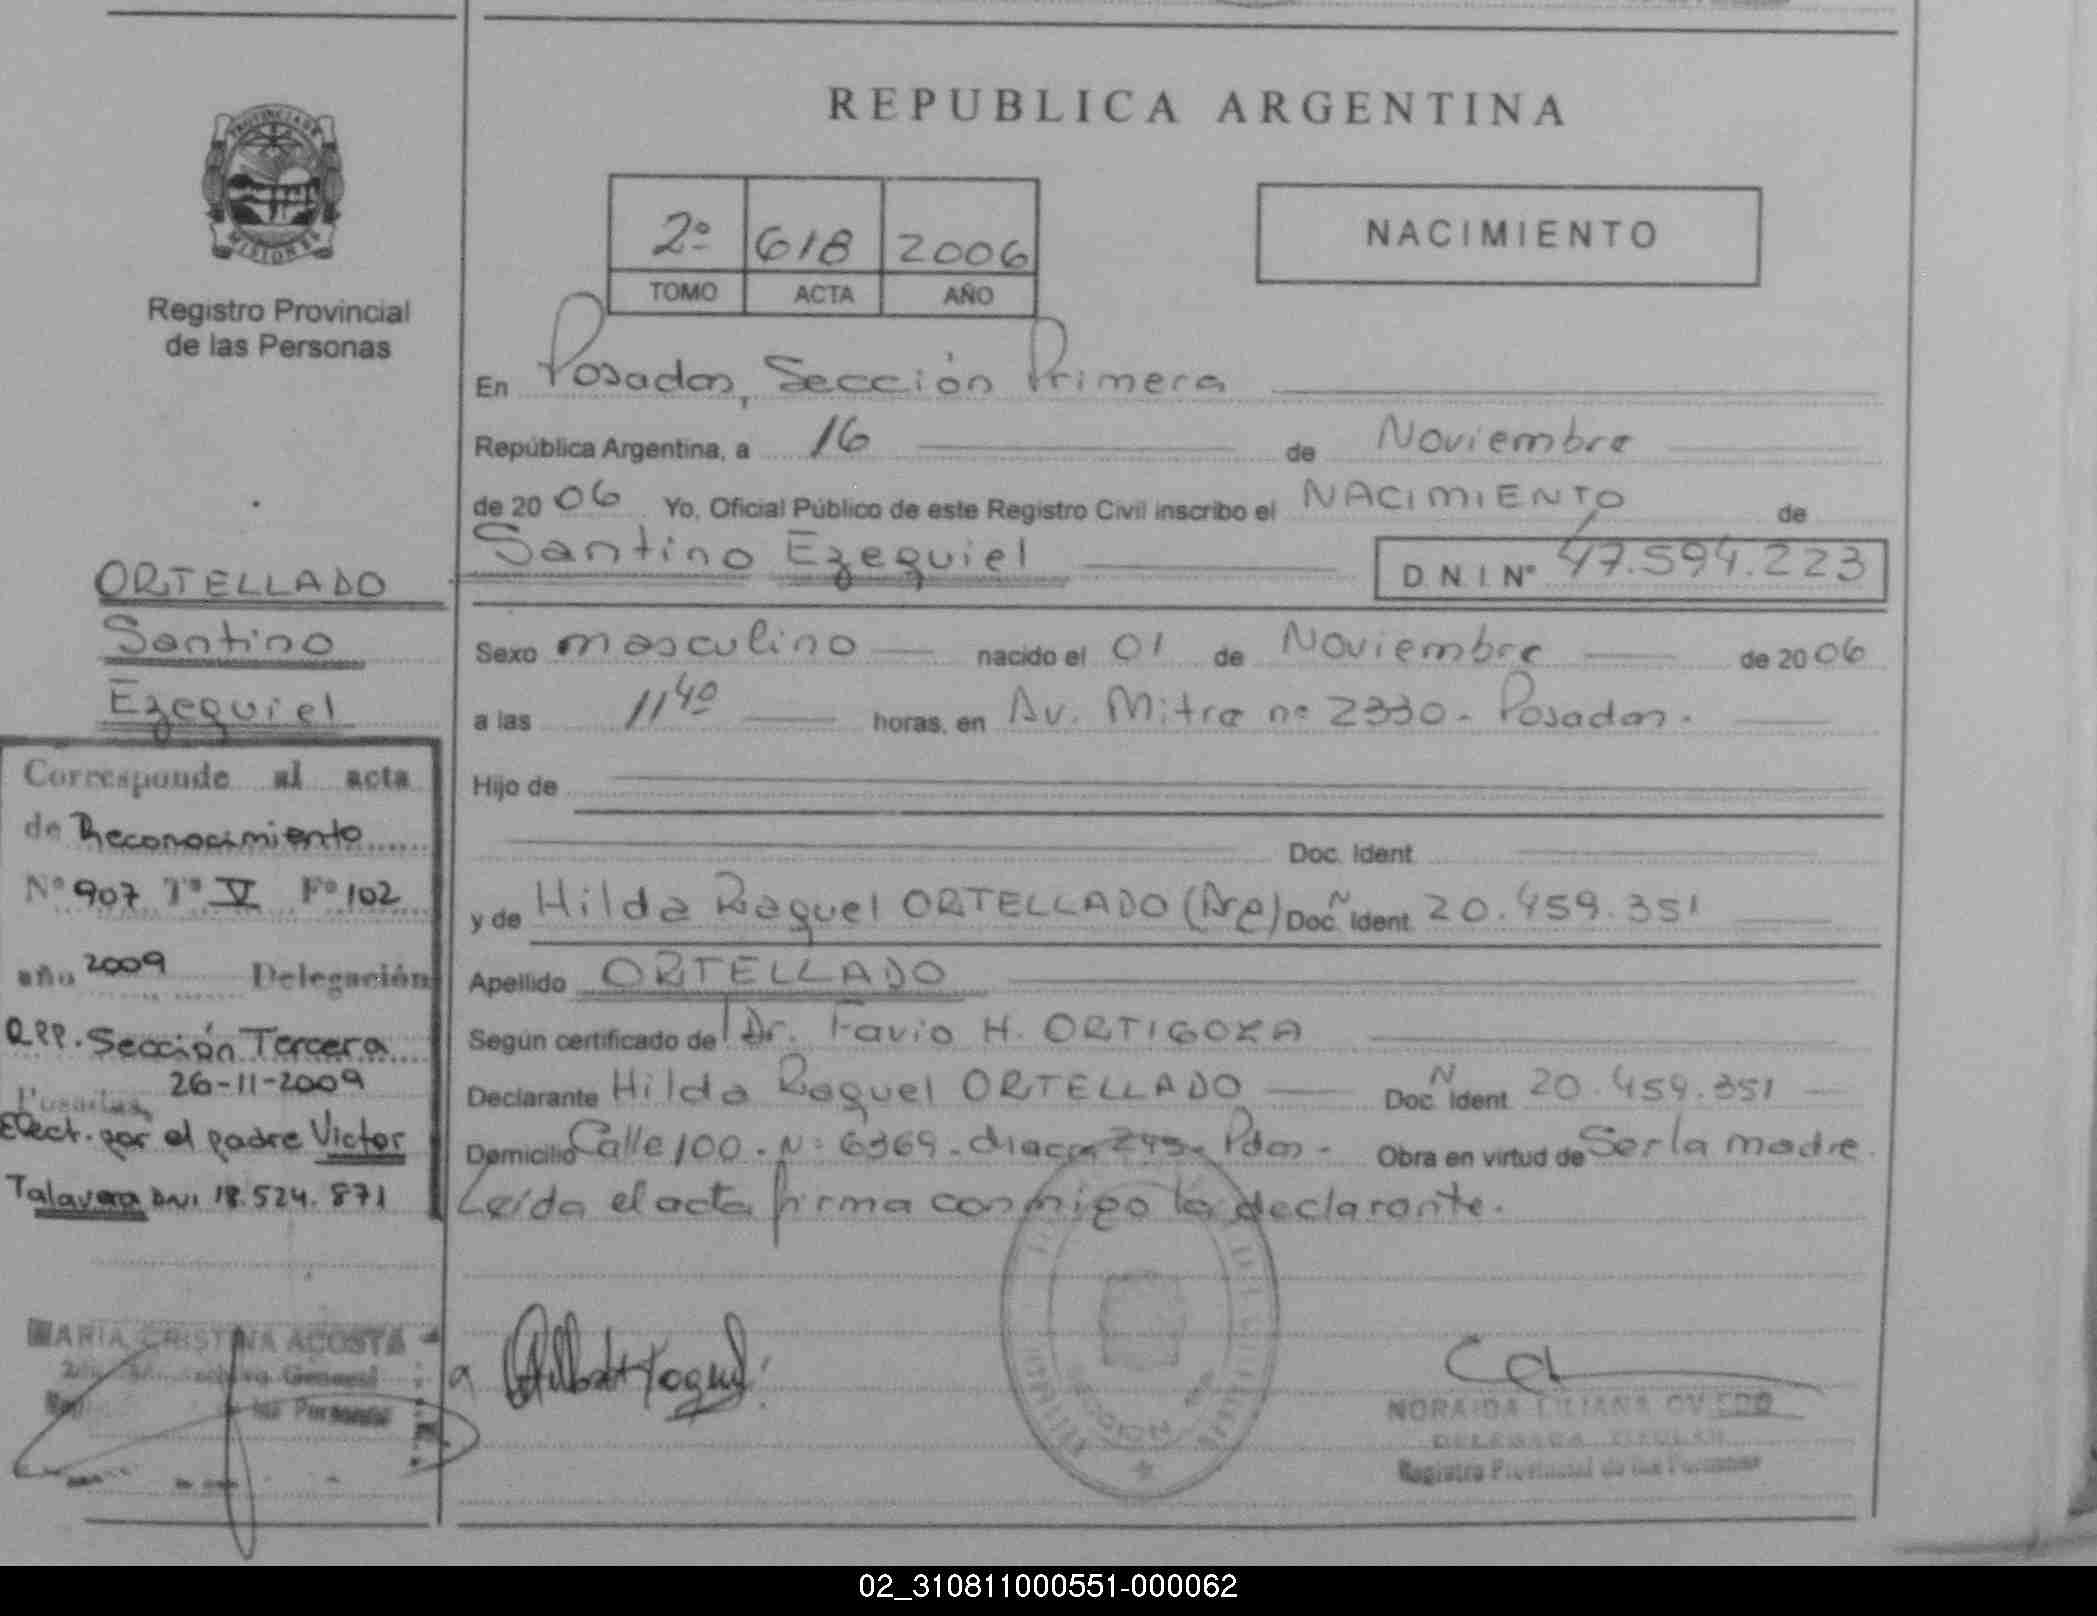 PROVINCIA DE
MISIONES
Registro Provincial
de las Personas
REPUBLICA ARGENTINA
2º 618 2006
TOMO ACTA AÑO
NACIMIENTO
En Posadas, Sección Primera
República Argentina, a 16 de Noviembre
de 2006 Yo, Oficial Público de este Registro Civil inscribo el NACIMIENTO de
Santino Ezequiel D.N.I.Nº 47.594.223
Sexo masculino nacido el 01 de Noviembre de 2006
a las 11 40 horas, en Av. Mitre nº 2330 - Posadas.
Hijo de
Doc. Ident
y de Hilda Raquel ORTELLADO (Arg) Doc. N Ident 20.459.351
Apellido ORTELLADO
Según certificado de Dr. Favio H. ORTIGOZA
Declarante Hilda Raquel ORTELLADO Doc. N Ident 20.459.351
Domicilio Calle 100 - Nº 6369 - chacra 245 - Pdas - Obra en virtud de Ser la madre.
Leída el acta firma conmigo la declarante.
ORTELLADO
Santino
Ezequiel
Corresponde al acta
de Reconocimiento
Nº 907 Tº V Fº 102
año 2009 Delegación
RPP. Sección Tercera
Posadas, 26-11-2009
Efect. por el padre Victor
Talavera DNI 18.524.871
MARIA CRISTINA ACOSTA
General
las Personas
NORAIDA LILIANA OVIEDO
DELEGADA TITULAR
Registro Provincial de las Personas
02_310811000551-000062